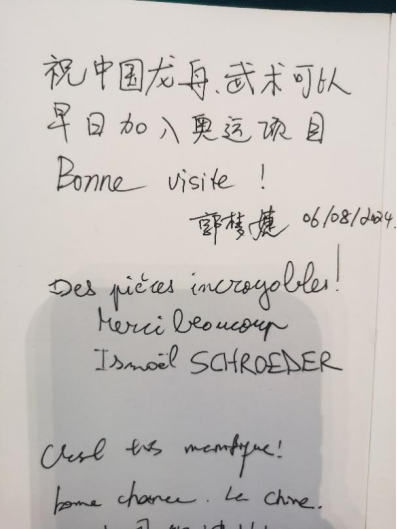 祝中国龙舟、武术可以
早日加入奥运项目
Bonne visite !
郭梦婕 06/08/2024.
Des pièces incroyables!
Merci beaucoup
Ismaël SCHROEDER
C'est très magnifique!
bonne chance. La Chine.